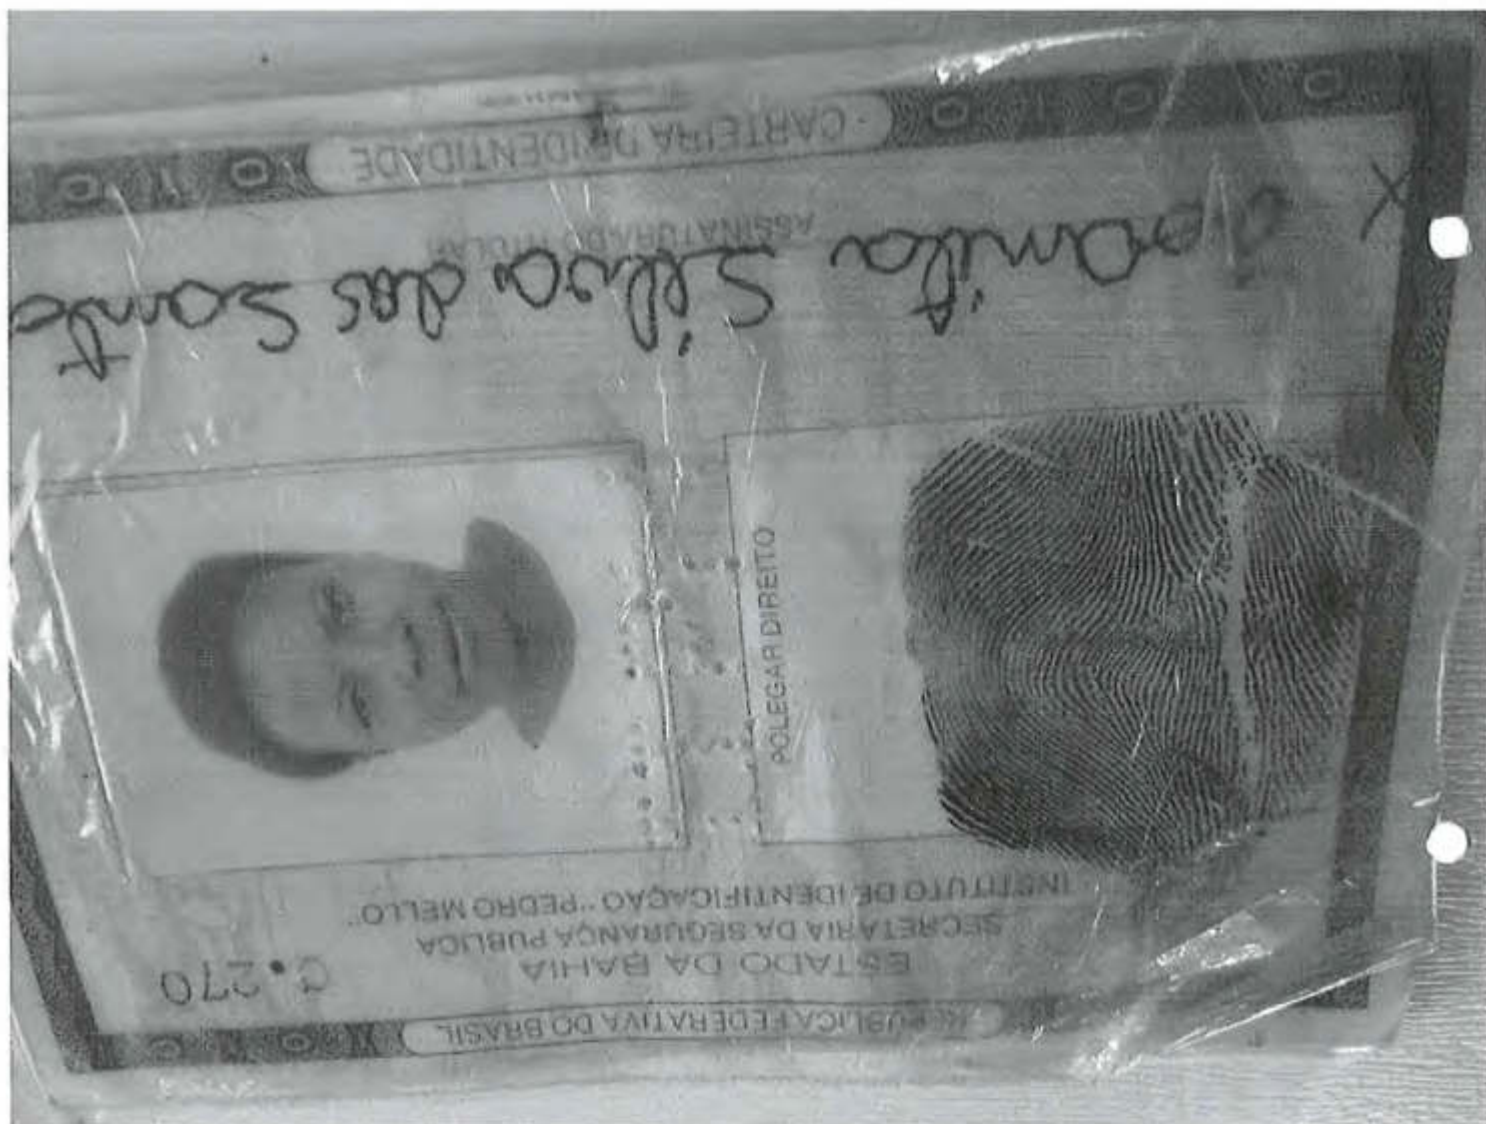 REPÚBLICA FEDERATIVA DO BRASIL
C.270
ESTADO DA BAHIA
SECRETARIA DA SEGURANÇA PUBLICA
INSTITUTO DE IDENTIFICAÇÃO "PEDRO MELLO"
POLEGAR DIREITO
X Silva dos Santo
ASSINATURA DO TITULAR
CARTEIRA DE IDENTIDADE